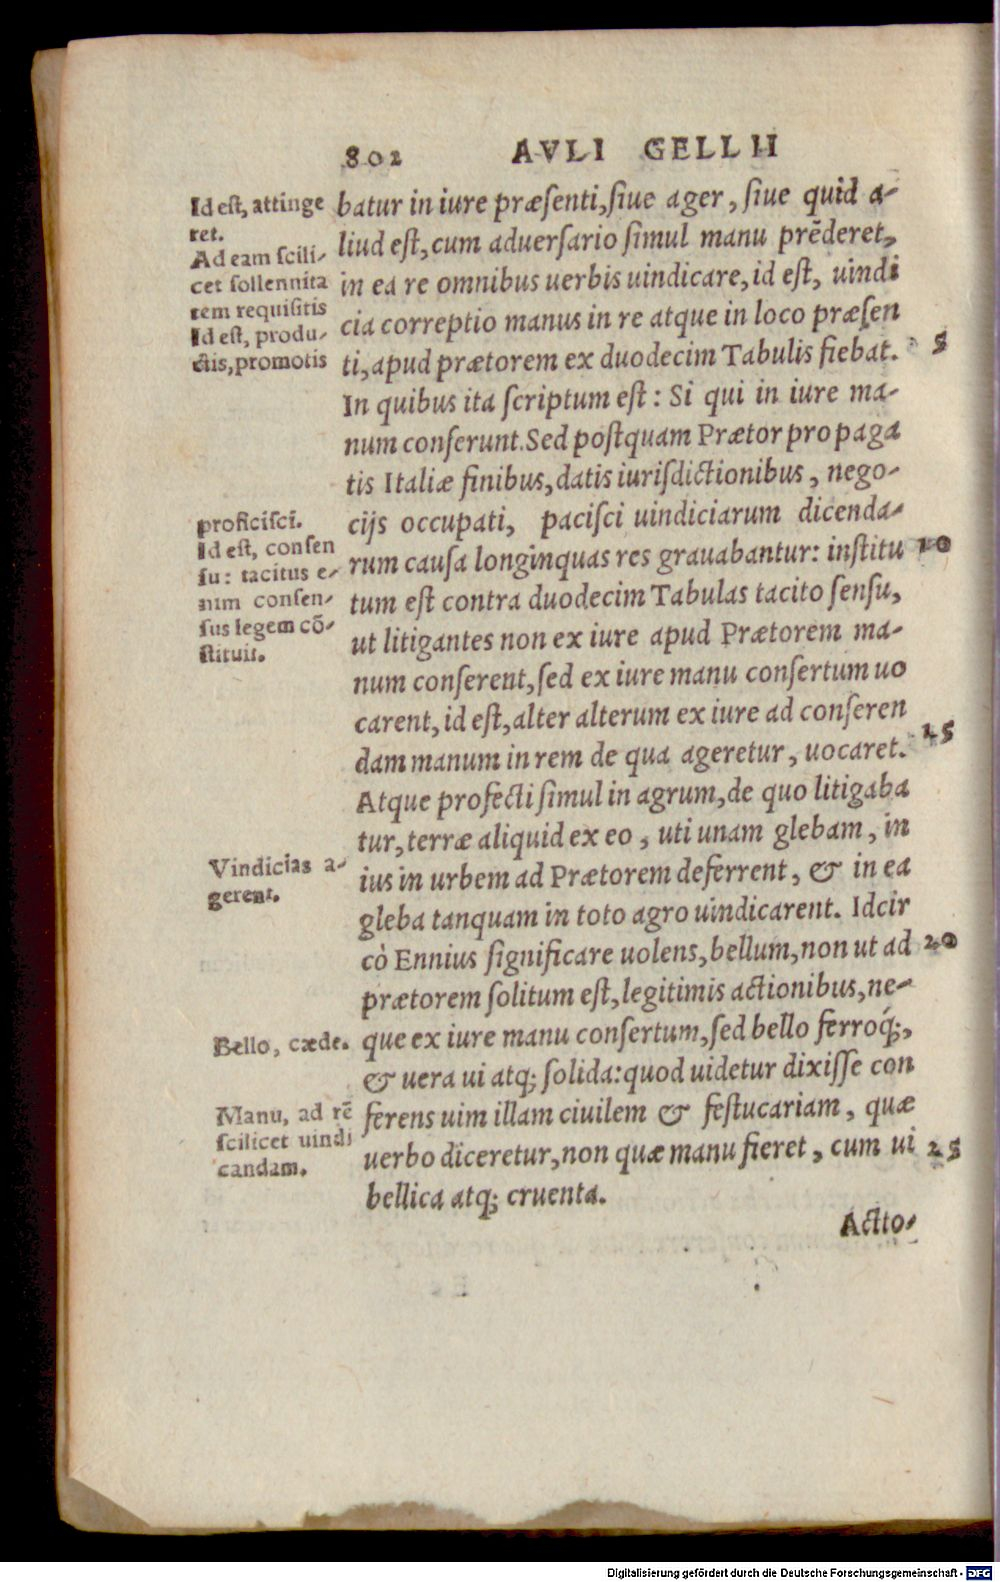 802 AVLI GELLII
Id est, attinge
ret.
Ad eam scili-
cet sollennita
tem requisitis
Id est, produ-
ctis, promotis
proficisci.
Id est, consen
su: tacitus e-
nim consen-
sus legem cõ-
stituit.
Vindicias a-
gerent.
Bello, cæde.
Manu, ad rẽ
scilicet uindi
candam.
batur in iure præsenti, siue ager, siue quid a-
liud est, cum aduersario simul manu prẽderet,
in ea re omnibus uerbis uindicare, id est, uindi
cia correptio manus in re atque in loco præsen
ti, apud prætorem ex duodecim Tabulis fiebat. 5
In quibus ita scriptum est: Si qui in iure ma-
num conserunt. Sed postquam Prætor propaga
tis Italiæ finibus, datis iurisdictionibus, nego-
cijs occupati, pacisci uindiciarum dicenda-
rum causa longinquas res grauabantur: institu 10
tum est contra duodecim Tabulas tacito sensu,
ut litigantes non ex iure apud Prætorem ma-
num conserent, sed ex iure manu consertum uo
carent, id est, alter alterum ex iure ad conseren
dam manum in rem de qua ageretur, uocaret. 15
Atque profecti simul in agrum, de quo litigaba
tur, terræ aliquid ex eo, uti unam glebam, in
ius in urbem ad Prætorem deferrent, & in ea
gleba tanquam in toto agro uindicarent. Idcir
cò Ennius significare uolens, bellum, non ut ad 20
prætorem solitum est, legitimis actionibus, ne-
que ex iure manu consertum, sed bello ferroq́;,
& uera ui atq; solida: quod uidetur dixisse con
ferens uim illam ciuilem & festucariam, quæ
uerbo diceretur, non quæ manu fieret, cum ui 25
bellica atq; cruenta.
Actio-
Digitalisierung gefördert durch die Deutsche Forschungsgemeinschaft - DFG